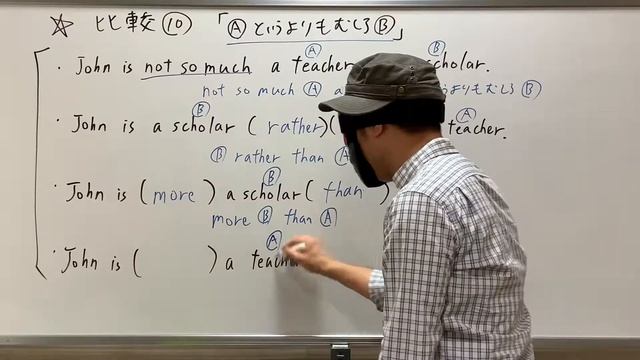 ☆ 比較⑩ 「ⒶというよりもむしろⒷ」
Ⓐ Ⓑ
・John is not so much a teacher scholar.
not so much Ⓐ a よりもむしろ Ⓑ
Ⓑ Ⓐ
・John is a scholar (rather)( teacher.
Ⓑ rather than Ⓐ
Ⓑ
・John is (more) a scholar (than)
more Ⓑ than Ⓐ
Ⓐ
・John is ( ) a